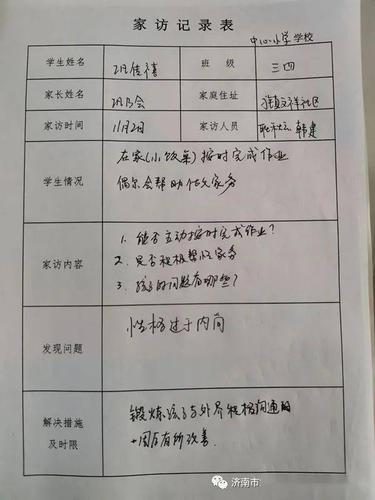 家访记录表
中心小学学校
学生姓名
班 级
三四
家长姓名
家庭住址
文祥社区
家访时间
11月2日
家访人员
韩建
学生情况
在家(小饭桌)按时完成作业
偶尔会帮助做家务
家访内容
1. 能否主动按时完成作业?
2. 是否积极帮忙家务
3. 孩子的问题有哪些?
发现问题
性格过于内向
解决措施
及时限
锻炼孩子与外界积极沟通的
一周后有所改善.
济南市